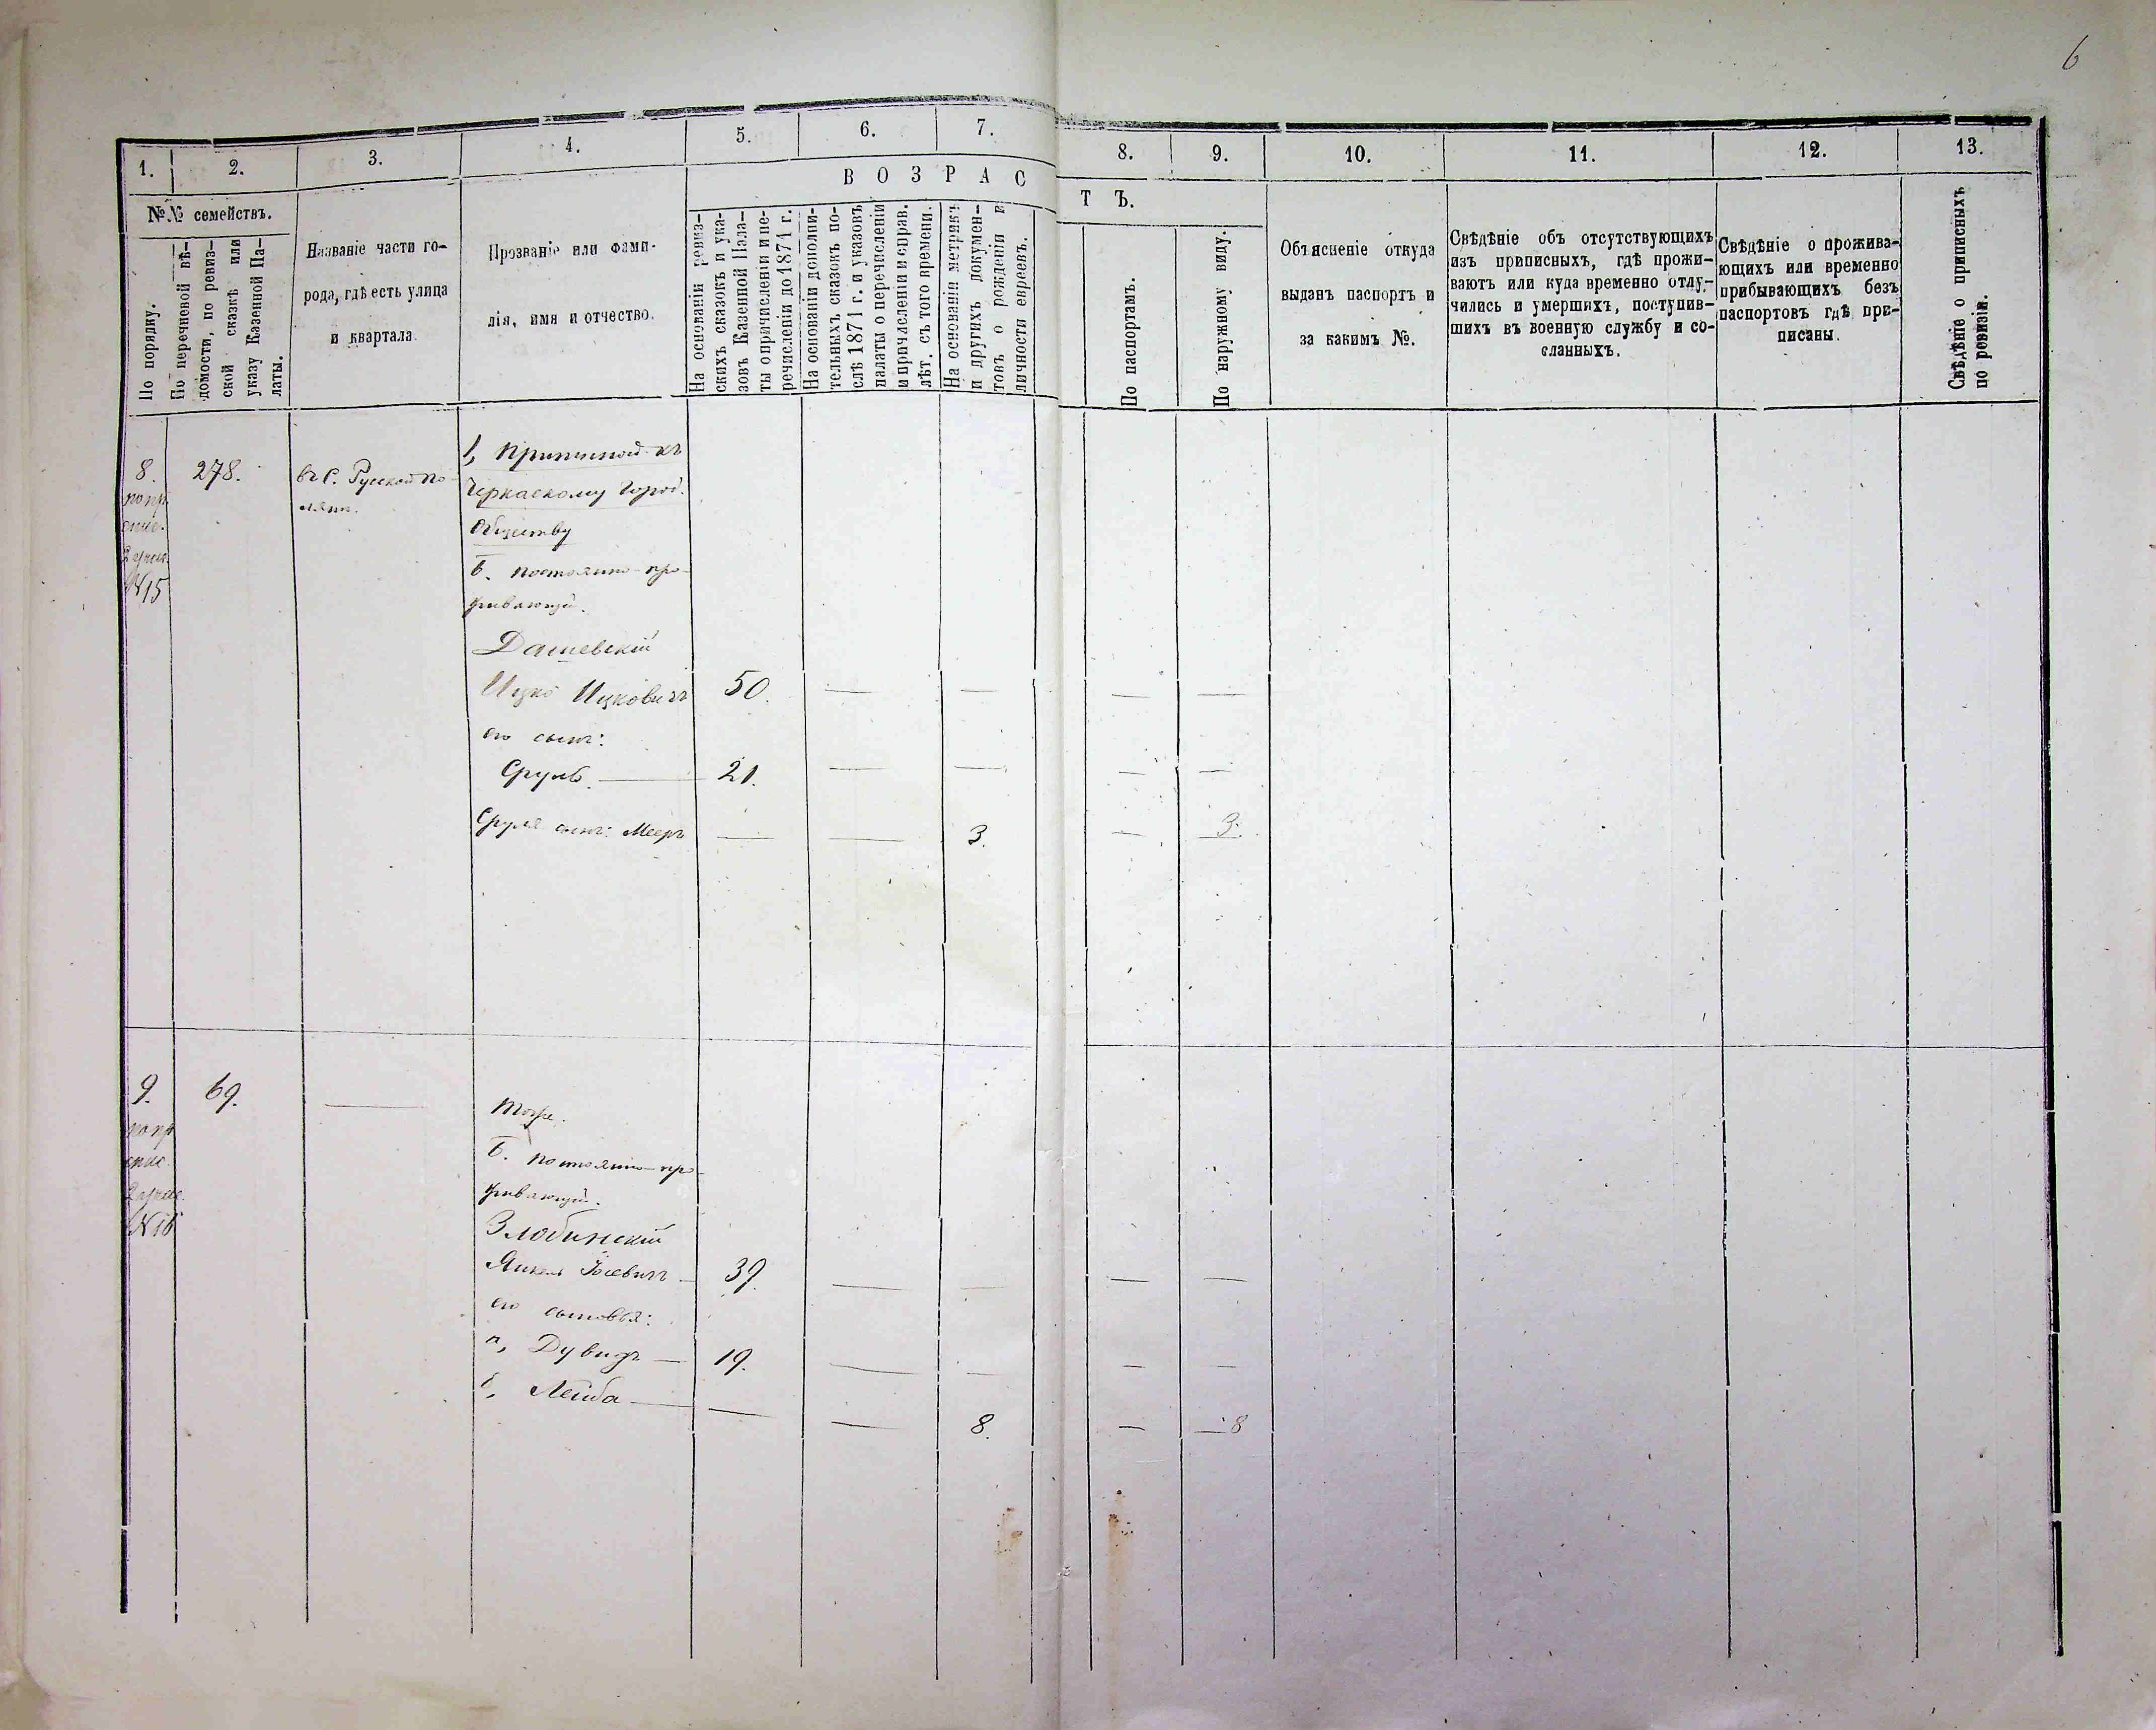 6
1.
2.
3.
4.
5.
6.
7.
8.
9.
10.
11.
12.
13.
№№ семействъ.
По порядку.
По перечневой вѣ-
домости, по ревиз-
ской сказкѣ или
указу Казенной Па-
латы.
Названіе части го-
рода, гдѣ есть улица
и квартала.
Прозваніе или фами-
лія, имя и отчество.
ВОЗРАС
ТЪ.
На основаніи ревиз-
скихъ сказокъ и ука-
зовъ Казенной Пала-
ты о причисленіи и пе-
речисленіи до 1871 г.
На основаніи дополни-
тельныхъ сказокъ по-
слѣ 1871 г. и указовъ
палаты о перечисленіи
и причисленіи и справ.
лѣт. съ того времени.
На основаніи метрикъ
и другихъ докумен-
товъ о рожденіи и
личности евреевъ.
По паспортамъ.
По наружному виду.
Объясненіе откуда
выданъ паспортъ и
за какимъ №.
Свѣдѣніе объ отсутствующихъ
изъ приписныхъ, гдѣ прожи-
ваютъ или куда временно отлу-
чились и умершихъ, поступив-
шихъ въ военную службу и со-
сланныхъ.
Свѣдѣніе о прожива-
ющихъ или временно
прибывающихъ безъ
паспортовъ гдѣ при-
писаны.
Свѣдѣніе о приписныхъ
по ревизіи.
8.
по пр.
спис.
2 участ.
№15
278.
въ с. Русской По-
лянѣ.
1, Приписной къ
Черкаскому Город.
Обществу
Б. постоянно-про-
живающій.
Дашевскій
Ицко Ицковичъ 50. — — — —
его сынъ:
Сруль — 21. — — — —
Сруля сынъ: Мееръ — — 3. — 3.
9.
по пр
спис.
2 участ.
№16
69.
—
Тоже.
Б. постоянно-про-
живающій.
Злобинскій
Янкель Іосевичъ — 39. — — — —
его сыновья:
а, Дувидъ — 19. — — — —
б, Лейба — — — 8. — 8